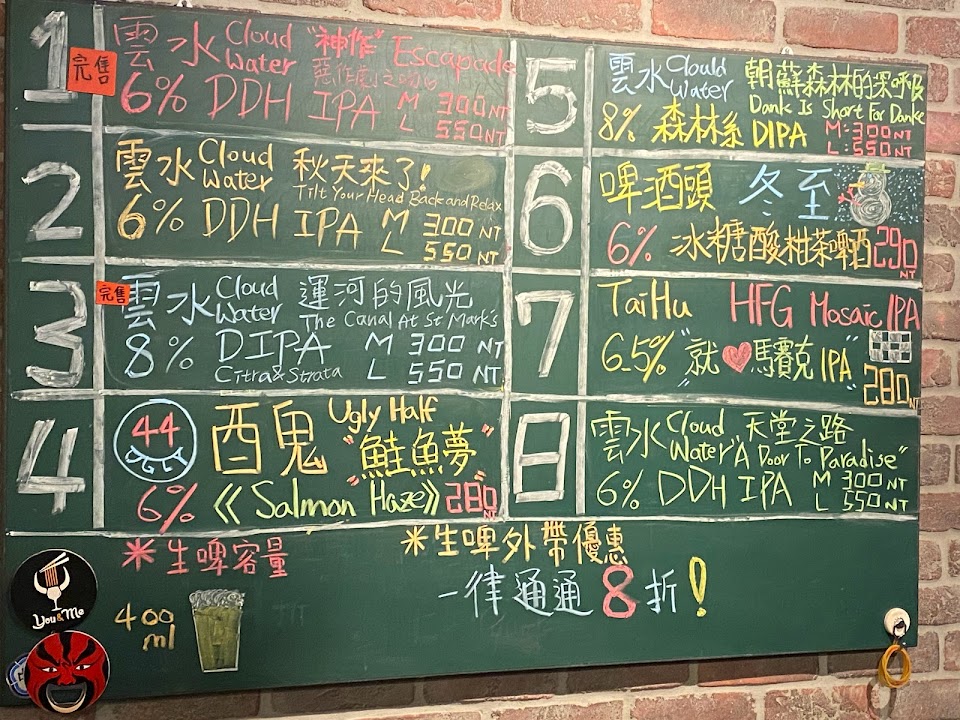 1
完售
雲水 Cloud Water "神作" Escapade
惡作劇之吻
6% DDH IPA M 300 NT
L 550 NT
2
雲水 Cloud Water 秋天來了!
Tilt Your Head Back and Relax
6% DDH IPA M 300 NT
L 550 NT
3
完售
雲水 Cloud Water 運河的風光
The Canal At St Mark's
8% DIPA M 300 NT
Citra & Strata L 550 NT
4
44
酉鬼 Ugly Half
"鮭魚夢"
6% 《Salmon Haze》 280 NT
5
雲水 Clould Water 朝蘇森林的深呼吸
Dank Is Short For Danke
8% 森林系 DIPA M: 300 NT
L: 550 NT
6
啤酒頭 冬至
6% 冰糖酸柑茶啤酒 290 NT
7
TaiHu HFG Mosaic IPA
6.5% "就❤馬賽克 IPA"
280 NT
8
雲水 Cloud Water 天堂之路
"A Door To Paradise"
6% DDH IPA M 300 NT
L 550 NT
*生啤容量
400 ml
*生啤外帶優惠
一律通通8折!
You & Me